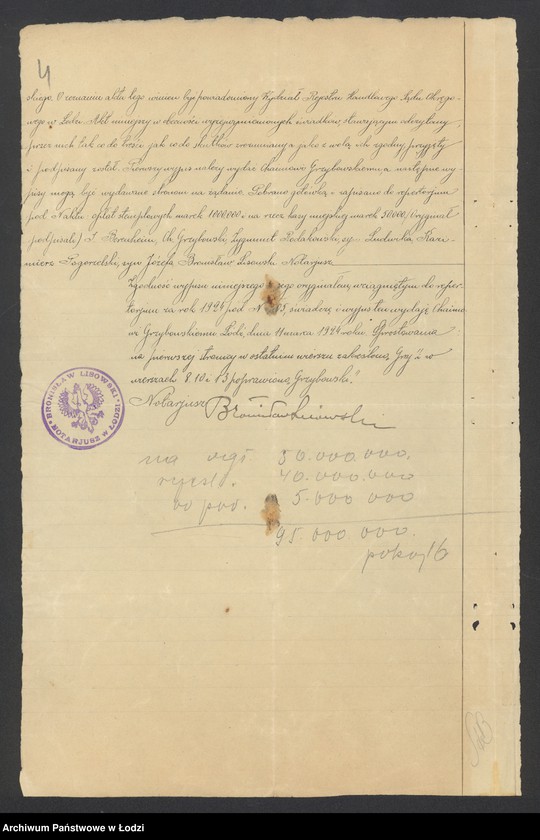 4
skiego. O zeznaniu aktu tego winien być powiadomiony Wydział Rejestru Handlowego Sądu Okręgo-
wego w Łodzi. Akt niniejszy w obecności wyżej wymienionych świadków, stawającym odczytany,
przez nich tak co do treści jak co do skutków zrozumiany a jako z wolą ich zgodny przyjęty
i podpisany został. Pierwszy wypis należy wydać Chaimowi Grzybowskiemu a następne wy-
pisy mogą być wydawane stronom na żądanie. Pobrano gotówką - zapisano do repertorjum
pod Nr opłat stemplowych marek 1000000 na rzecz kasy miejskiej marek 50000. Oryginał
podpisali) I. Bernheim, Ch. Grzybowski, Zygmunt syn Ludwika Kazi-
mierz Pogorzelski, syn Józefa. Bronisław Lisowski Notarjusz
Zgodność wypisu niniejszego z jego oryginałem, wciągniętym do reper-
torjum za rok 1924 pod N świadczę i wypis ten wydaję Chaimo-
wi Grzybowskiemu. Łódź, dnia 11 marca 1924 roku. Sprostowania:
na pierwszej stronicy w ostatnim wierszu zakreślono, Grzy" i w
wierszach 8. 10 i 13 poprawiono, Grzybowski".
Notarjusz Bronisław Lisowski
BRONISŁAW LISOWSKI
NOTARJUSZ w ŁODZI
na 50.000.000.
40.000.000
5.000 000
95.000 000.
Archiwum Państwowe w Łodzi